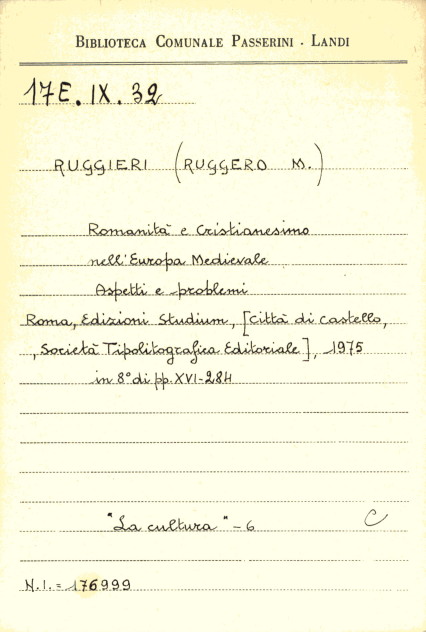 BIBLIOTECA COMUNALE PASSERINI - LANDI
17E.IX.32
RUGGIERI (RUGGERO M.)
Romanità e Cristianesimo
nell'Europa Medievale
Aspetti e problemi
Roma, Edizioni Studium, [Città di Castello,
, Società Tipolitografica Editoriale], 1975
in 8° di pp. XVI-284
"La cultura" - 6
C
N.I. = 176999